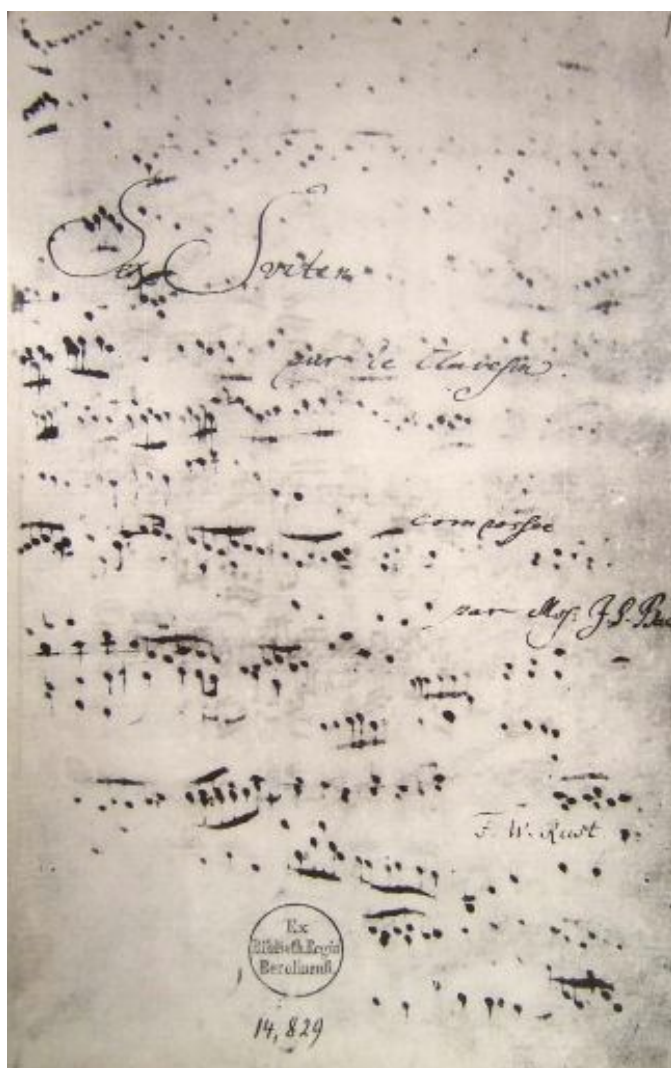 Sex Sviten
pur le Clavesin
compossee
par Mos: J. S. Bac
F. W. Rust
Ex
Biblioth. Regia
Berolinenſi
14,829